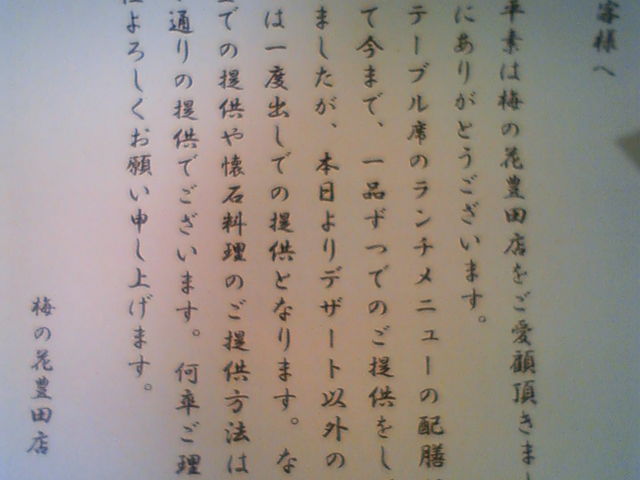 客様へ
平素は梅の花豊田店をご愛顧頂きまし
にありがとうございます。
テーブル席のランチメニューの配膳
て今まで、一品ずつでのご提供をし
ましたが、本日よりデザート以外の
は一度出しでの提供となります。な
での提供や懐石料理のご提供方法は
通りの提供でございます。何卒ご理
よろしくお願い申し上げます。
梅の花豊田店